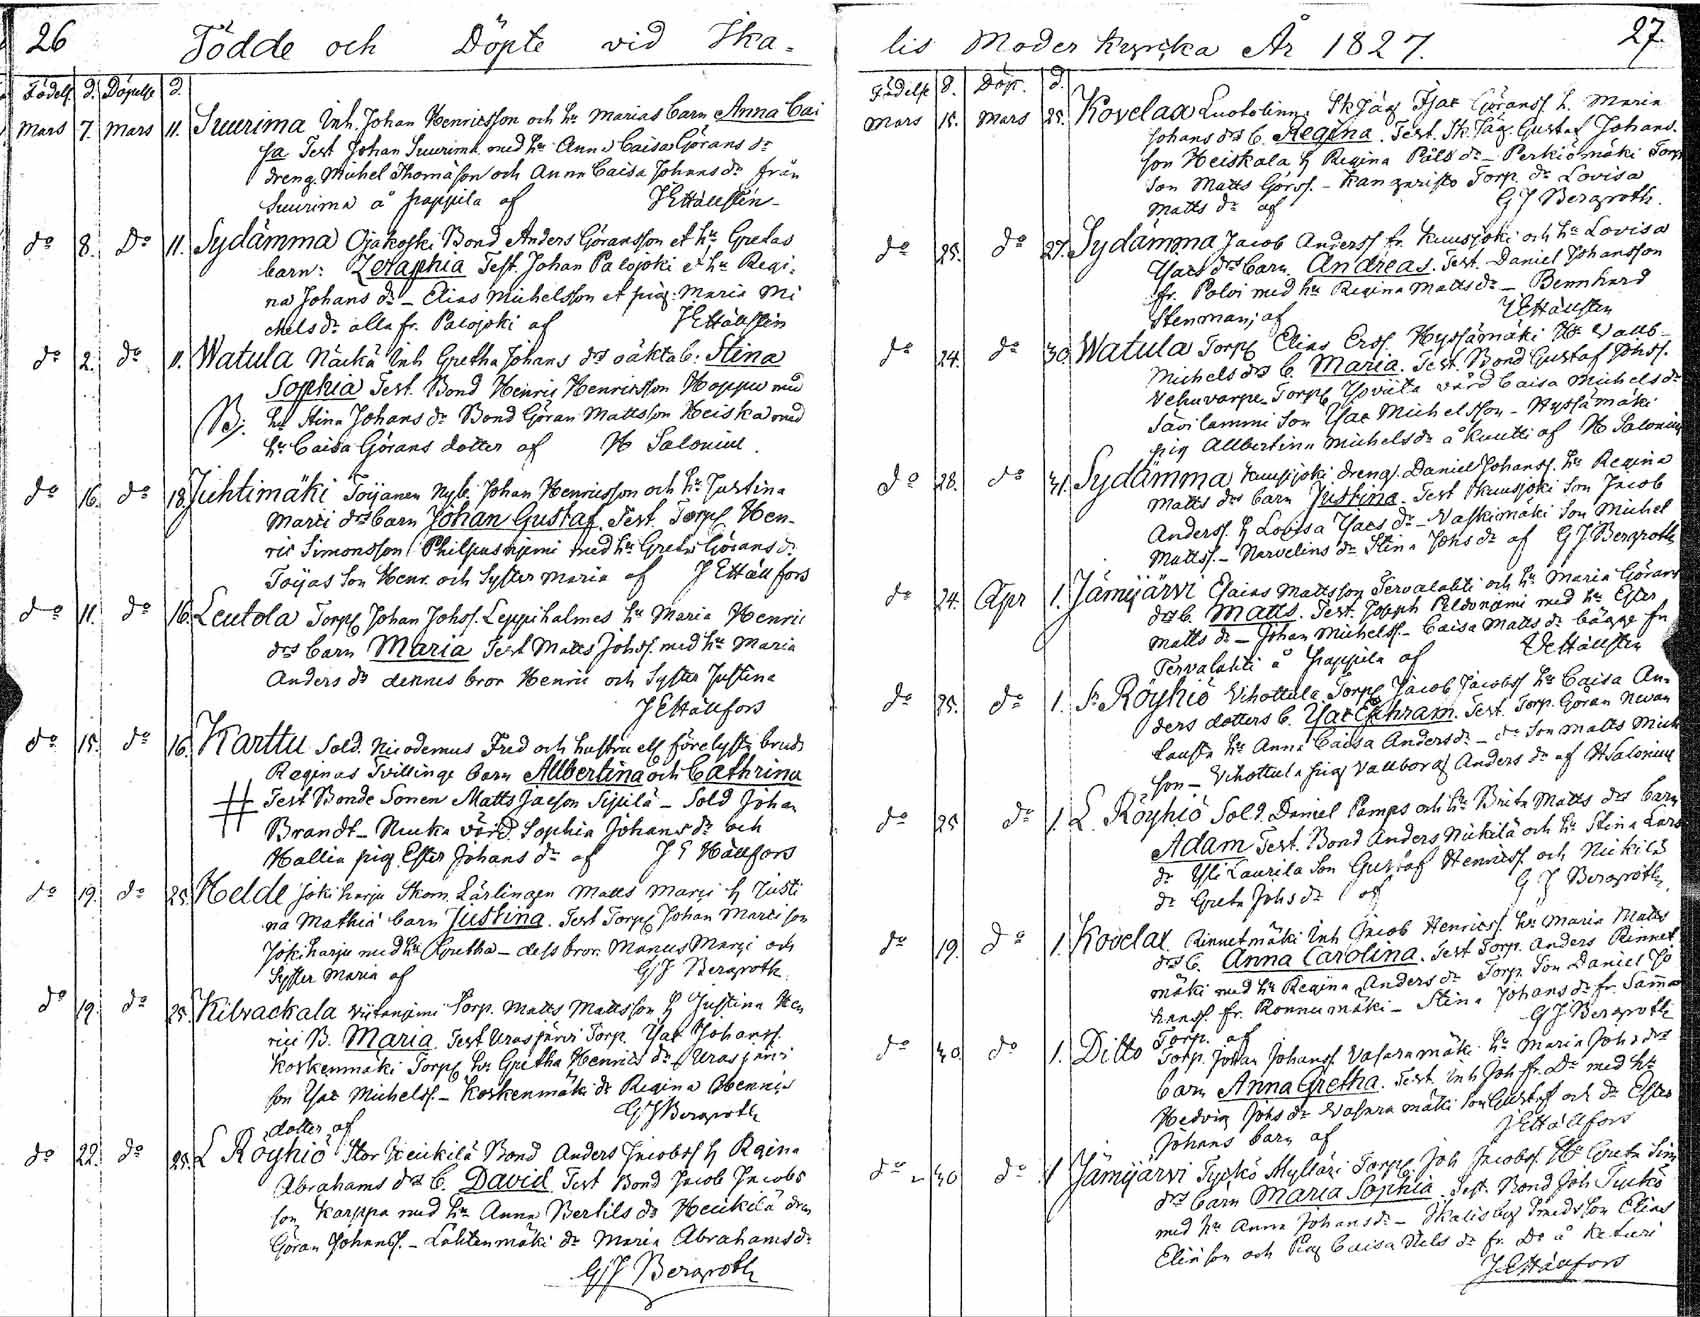 26 Födde och Döpte vid Ika=
Födelse d. Döpelse d.
Mars 7. Mars 11. Suurima Inh. Johan Henricsson och hu Marias barn Anna Cai
sa Test Johan Suurima med hu Anna Caisa Görans dr
dreng. Michel Thomasson och Anna Caisa Johans dr från
Suurima å pappila af J E Hällfors
do 8. Do 11. Sydämma Ojakoski Bond Anders Göransson et hu Gretas
barn: Zeraphia Test. Johan Palojoki et hu Regi-
na Johans dr – Elias Michelsson et pig: Maria Mi
chels dr alla fr. Palojoki af J E Hällfors
do 2. do 11. Watula Näckä Inh Gretha Johans drs oäkta b: Stina
Sophia Test. Bond Henric Henricsson Hoppu med
hu Stina Johans dr Bond Göran Mattsson Heiska med
hu Caisa Görans dotter af H Salonius.
do 16. do 18. Juhtimäki Toijanen Nyb. Johan Henricsson och hu Justina
Marci drs barn Johan Gustaf. Test. Torp Hen-
ric Simonsson Philpusnjemi med hu Greta Görans dr
Toijas Son Henr. och Syster Maria af J E Hällfors
do 11. do 16. Leutola Torp Johan Johss. Leppihalmes hu Maria Henric
drs barn Maria Test Matts Johss. med hu Maria
Anders dr dennes bror Henric och Syster Justina
J E Hällfors
do 15. do 16. Karttu Sold. Nicodemus Fred och hustru ell förelyfte brud
Reginas Tvillinge barn Allbertina och Cathrina
# Test Bonde Sonen Matts Jacson Sipilä – Sold Johan
Brandt – Nuuka värd. Sophia Johans dr och
Hallia pig Ester Johans dr af J E Hällfors
do 19. do 25. Helde Jokiharju Skom. Lärlingen Matts Marci h Justi
na Mathia barn Justina. Test Torp Johan Marcison
Jokiharju med hu Gretha – dess bror Manus Marci och
Syster Maria af G J Bergroth.
do 19. do 25. Kilvackala Viitanjemi Torp. Matts Mattsson h Justina Hen
rici B. Maria. Test Urasjärvi Torp. Isac Johanss.
Koskenmäki Torp hu Gretha Henrics dr Urasjärvi
son Isac Michelss. – Koskenmäki dr Regina Henrics
dotter af G J Bergroth
do 22. do 25. L Röyhiö Stor Heikilä Bond Anders Jacobss h Regina
Abrahams drs b. David Test Bond Jacob Jacobs
son Karppa med hu Anna Bertils dr Heikilä dreng
Göran Johanss. – Lahtenmäki dr Maria Abrahams dr
G J Bergroth
lis Moder kyrka År 1827. 27.
Födelse d. Döp. d.
Mars 15. Mars 25. Kovelax Luotolinna Sk Jäg Isac Göranss h. Maria
Johans drs b. Regina. Test. Sk. Jäg. Gustaf Johans-
son Heiskala h Regina Påls dr – Perkiömäki Torp
Son Matts Görss. – Kangaristo Torp. dr Lovisa
Matts dr af G J Bergroth.
do 25. do 27. Sydämma Jacob Anderss fr. Kuusjoki och hu Lovisa
Isacs drs barn Andreas. Test. Daniel Johansson
fr. Poloi med hu Regina Matts dr – Bernhard
Stenman; af J E Hällfors
do 24. do 30. Watula Torp Elias Erss. Hyssämäki Hu Vallb-
Michels drs b. Maria. Test. Bond Gustaf Johss.
Vehuvarpe Torp Ypviita värd Caisa Michels dr
Savilammi Son Isac Michelsson – Hyssämäki
pig Allbertina Michels dr å Kuutti af H Salonius
do 28. do 31. Sydämma Kuusjoki dreng. Daniel Johanss. hu Regina
Matts drs barn Justina. Test Kuusjoki Son Jacob
Anderss. h Lovisa Isacs dr – Vaskimäki Son Michel
Mattss. – Narvelins dr Stina Johs dr af G J Bergroth
do 24. Apr 1. Jämijärvi Esaias Mattsson Tervalahti och hu Maria Görans
drs b. Matts. Test. Joseph Peldonjemi med hu Ester
Matts dr – Johan Michelss – Caisa Matts dr bägge fr
Tervalahti å pappila af J E Hällfors
do 25. do 1. St. Röyhiö Vihottula Torp Jacob Jacobss hu Caisa An-
ders dotters b. Isac Ephram. Test. Torp. Göran Nevan
Lausta hu Anna Caisa Anders dr – do Son Matts Mich
son – Vihottula pig Vallborg Anders dr af H Salonius
do 25 do 1. L. Röyhiö Sold. Daniel Pamps och hu Brita Matts drs barn
Adam Test. Bond Anders Nickilä och hu Stina Lars
dr Yli Laurila Son Gustaf Henricss. och Nickilä
dr Greta Johs dr af G J Bergroth.
do 19. do 1. Kovelax. Rinnetmäki Inh Jacob Henricss. hu Maria Matts
drs b. Anna Carolina. Test Torp. Anders Rinnet
mäki med hu Regina Anders dr Torp. Son Daniel Jo
hanss. fr. Ronnumäki – Stina Johans dr fr. Samma
Torp. af G J Bergroth
do 30. do 1. Ditto Torp. Johan Johanss. Vasaramäki hu Maria Johs drs
barn Anna Gretha. Test. Inh Joh fr. Do med hu
Hedvig Johs dr Vasaramäki Son Gustaf och dr Ester
Johans barn af J E Hällfors
do 30 do 1 Jämijärvi Tyckö Mylläri Torp Joh Jacobss. Hu Greta Sim
drs barn Maria Sophia. Test. Bond Joh Tyckö
med hu Anna Johans dr – Ikalisby Smedsson Elias
Elieson och Pig Caisa Nels dr fr. Do å Keturi
J E Hällfors